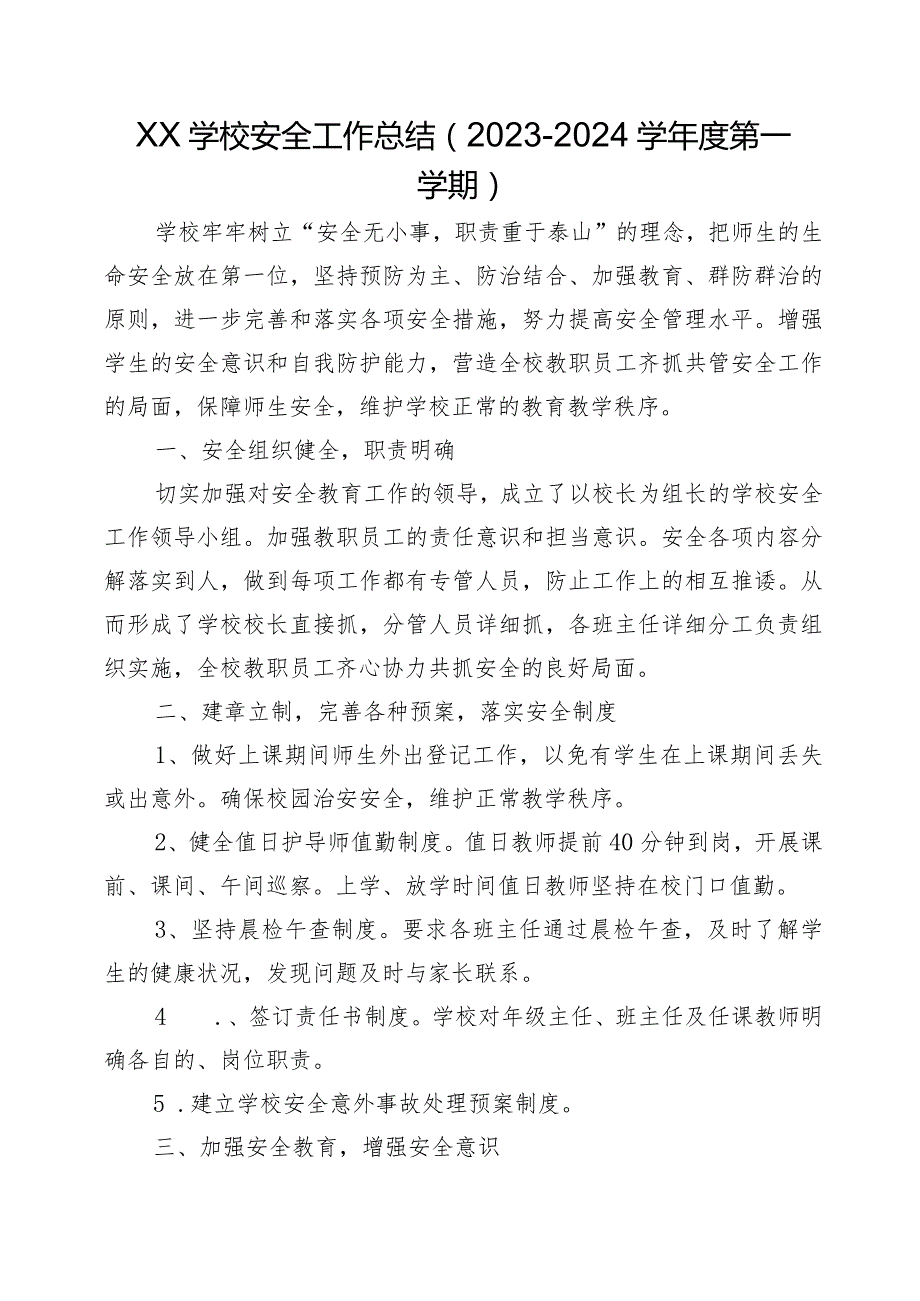 XX 学校安全工作总结（2023-2024 学年度第一
学期）
学校牢牢树立“安全无小事，职责重于泰山”的理念，把师生的生
命安全放在第一位，坚持预防为主、防治结合、加强教育、群防群治的
原则，进一步完善和落实各项安全措施，努力提高安全管理水平。增强
学生的安全意识和自我防护能力，营造全校教职员工齐抓共管安全工作
的局面，保障师生安全，维护学校正常的教育教学秩序。
一、安全组织健全，职责明确
切实加强对安全教育工作的领导，成立了以校长为组长的学校安全
工作领导小组。加强教职员工的责任意识和担当意识。安全各项内容分
解落实到人，做到每项工作都有专管人员，防止工作上的相互推诿。从
而形成了学校校长直接抓，分管人员详细抓，各班主任详细分工负责组
织实施，全校教职员工齐心协力共抓安全的良好局面。
二、建章立制，完善各种预案，落实安全制度
1、做好上课期间师生外出登记工作，以免有学生在上课期间丢失
或出意外。确保校园治安安全，维护正常教学秩序。
2、健全值日护导师值勤制度。值日教师提前 40 分钟到岗，开展课
前、课间、午间巡察。上学、放学时间值日教师坚持在校门口值勤。
3、坚持晨检午查制度。要求各班主任通过晨检午查，及时了解学
生的健康状况，发现问题及时与家长联系。
4 .、签订责任书制度。学校对年级主任、班主任及任课教师明
确各自的、岗位职责。
5 .建立学校安全意外事故处理预案制度。
三、加强安全教育，增强安全意识